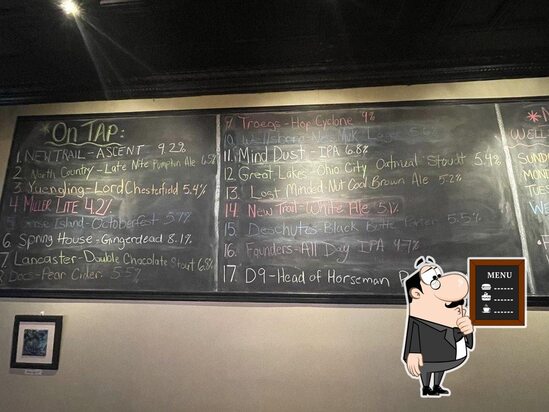 *On TAP:
1. NEW TRAIL - ASCENT 9.2%
2 North Country - Late Nite Pumpkin Ale 6.5%
3. Yuengling - Lord Chesterfield 5.4%
4 Miller Lite 4.2%
Island - Octoberfest
6. Spring House - Gingerdead 8.1%
7. Lancaster - Double Chocolate Stout 6.8%
Docs - Pear Cider 5.5%
9. Troegs - Hop Cyclone 9%
10. Wellsboro Lager
11. Mind Dust - IPA 6.8%
12. Great Lakes - Ohio City Oatmeal Stoudt 5.4%
13. Lost Minded Nut Cool Brown Ale 5.2%
14. New Trail - White Ale 5.1%
15. Deschutes - Black Butte Porter 5.5%
16. Founders - All Day IPA 4.7%
17. D9 - Head of Horseman
WELL
SUND
MOND
TUES
WE
MENU